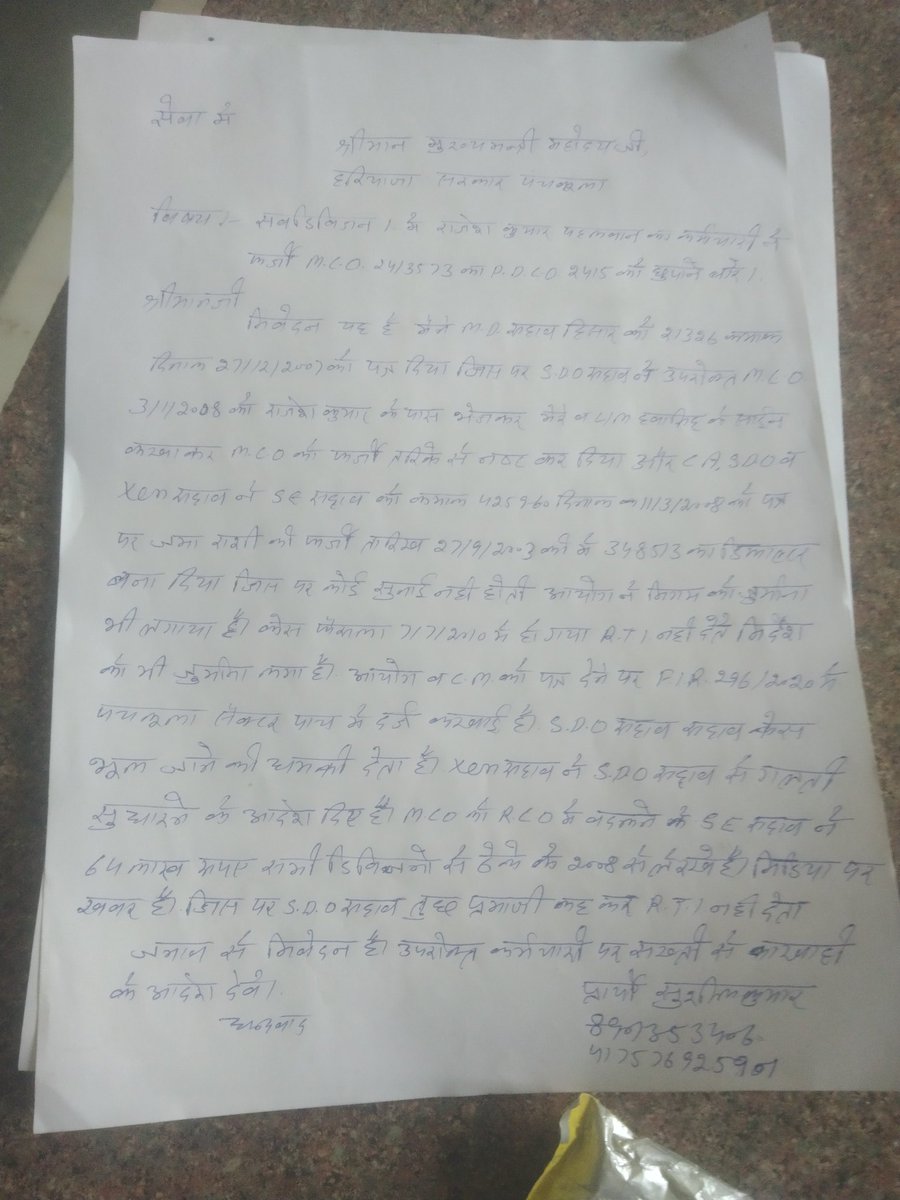 सेवा में
श्रीमान मुख्यमन्त्री महोदय जी,
हरियाणा सरकार पंचकुला
विषय :- सबडिविजन 1 में राजेश कुमार पहलवान का कर्मचारी ने
फर्जी M.C.O. 2413573 का P.D.C.O 2415 को छुपाने बारे।
श्रीमानजी
निवेदन यह है मैने M.D. साहब हिसार को 21326 कमांक
दिनांक 27/12/2007 को पत्र दिया जिस पर S.D.O साहब ने उपरोक्त M.C.O.
3/1/2008 को राजेश कुमार के पास भेजकर मेरे व के साईन
करवाकर M.C.O को फर्जी तरिके से नष्ट कर दिया और C.A, SDO व
Xen साहब ने SE साहब को कमांक 425960 दिनांक 11/3/2008 को पत्र
पर जमा राशी की फर्जी तारिख 27/9/2003 की में 348513 का डिफाल्टर
बना दिया जिस पर कोई सुनाई नही होती आयोग ने निगम को जुर्माना
भी लगाया है। केस फैसला 7/7/2010 में हो गया R.T.I नही देते निर्देश
को भी जुर्माना लगा है। आयोग व C.M. को पत्र देने पर F.I.R. 296/2020 में
पंचकुला सैक्टर पांच में दर्ज करवाई है। S.D.O साहब केस
भूल जाने की धमकी देता है। Xen साहब ने S.D.O साहब से गलती
सुधारने के आदेश दिए है। M.C.O को R.C.O में बदलने के SE साहब ने
64 लाख रूपए सभी डिविजनो से ठेके के 2008 से ले रखे है। मिडिया पर
खबर है। जिस पर S.D.O साहब तुछ प्रभाजी कह कर R.T.I नही देता
जनाब से निवेदन है। उपरोक्त कर्मचारी पर सख्ती से कारवाही
के आदेश देवे।
प्रार्थी सुशील कुमार
धन्यवाद
8901353406
417576925901